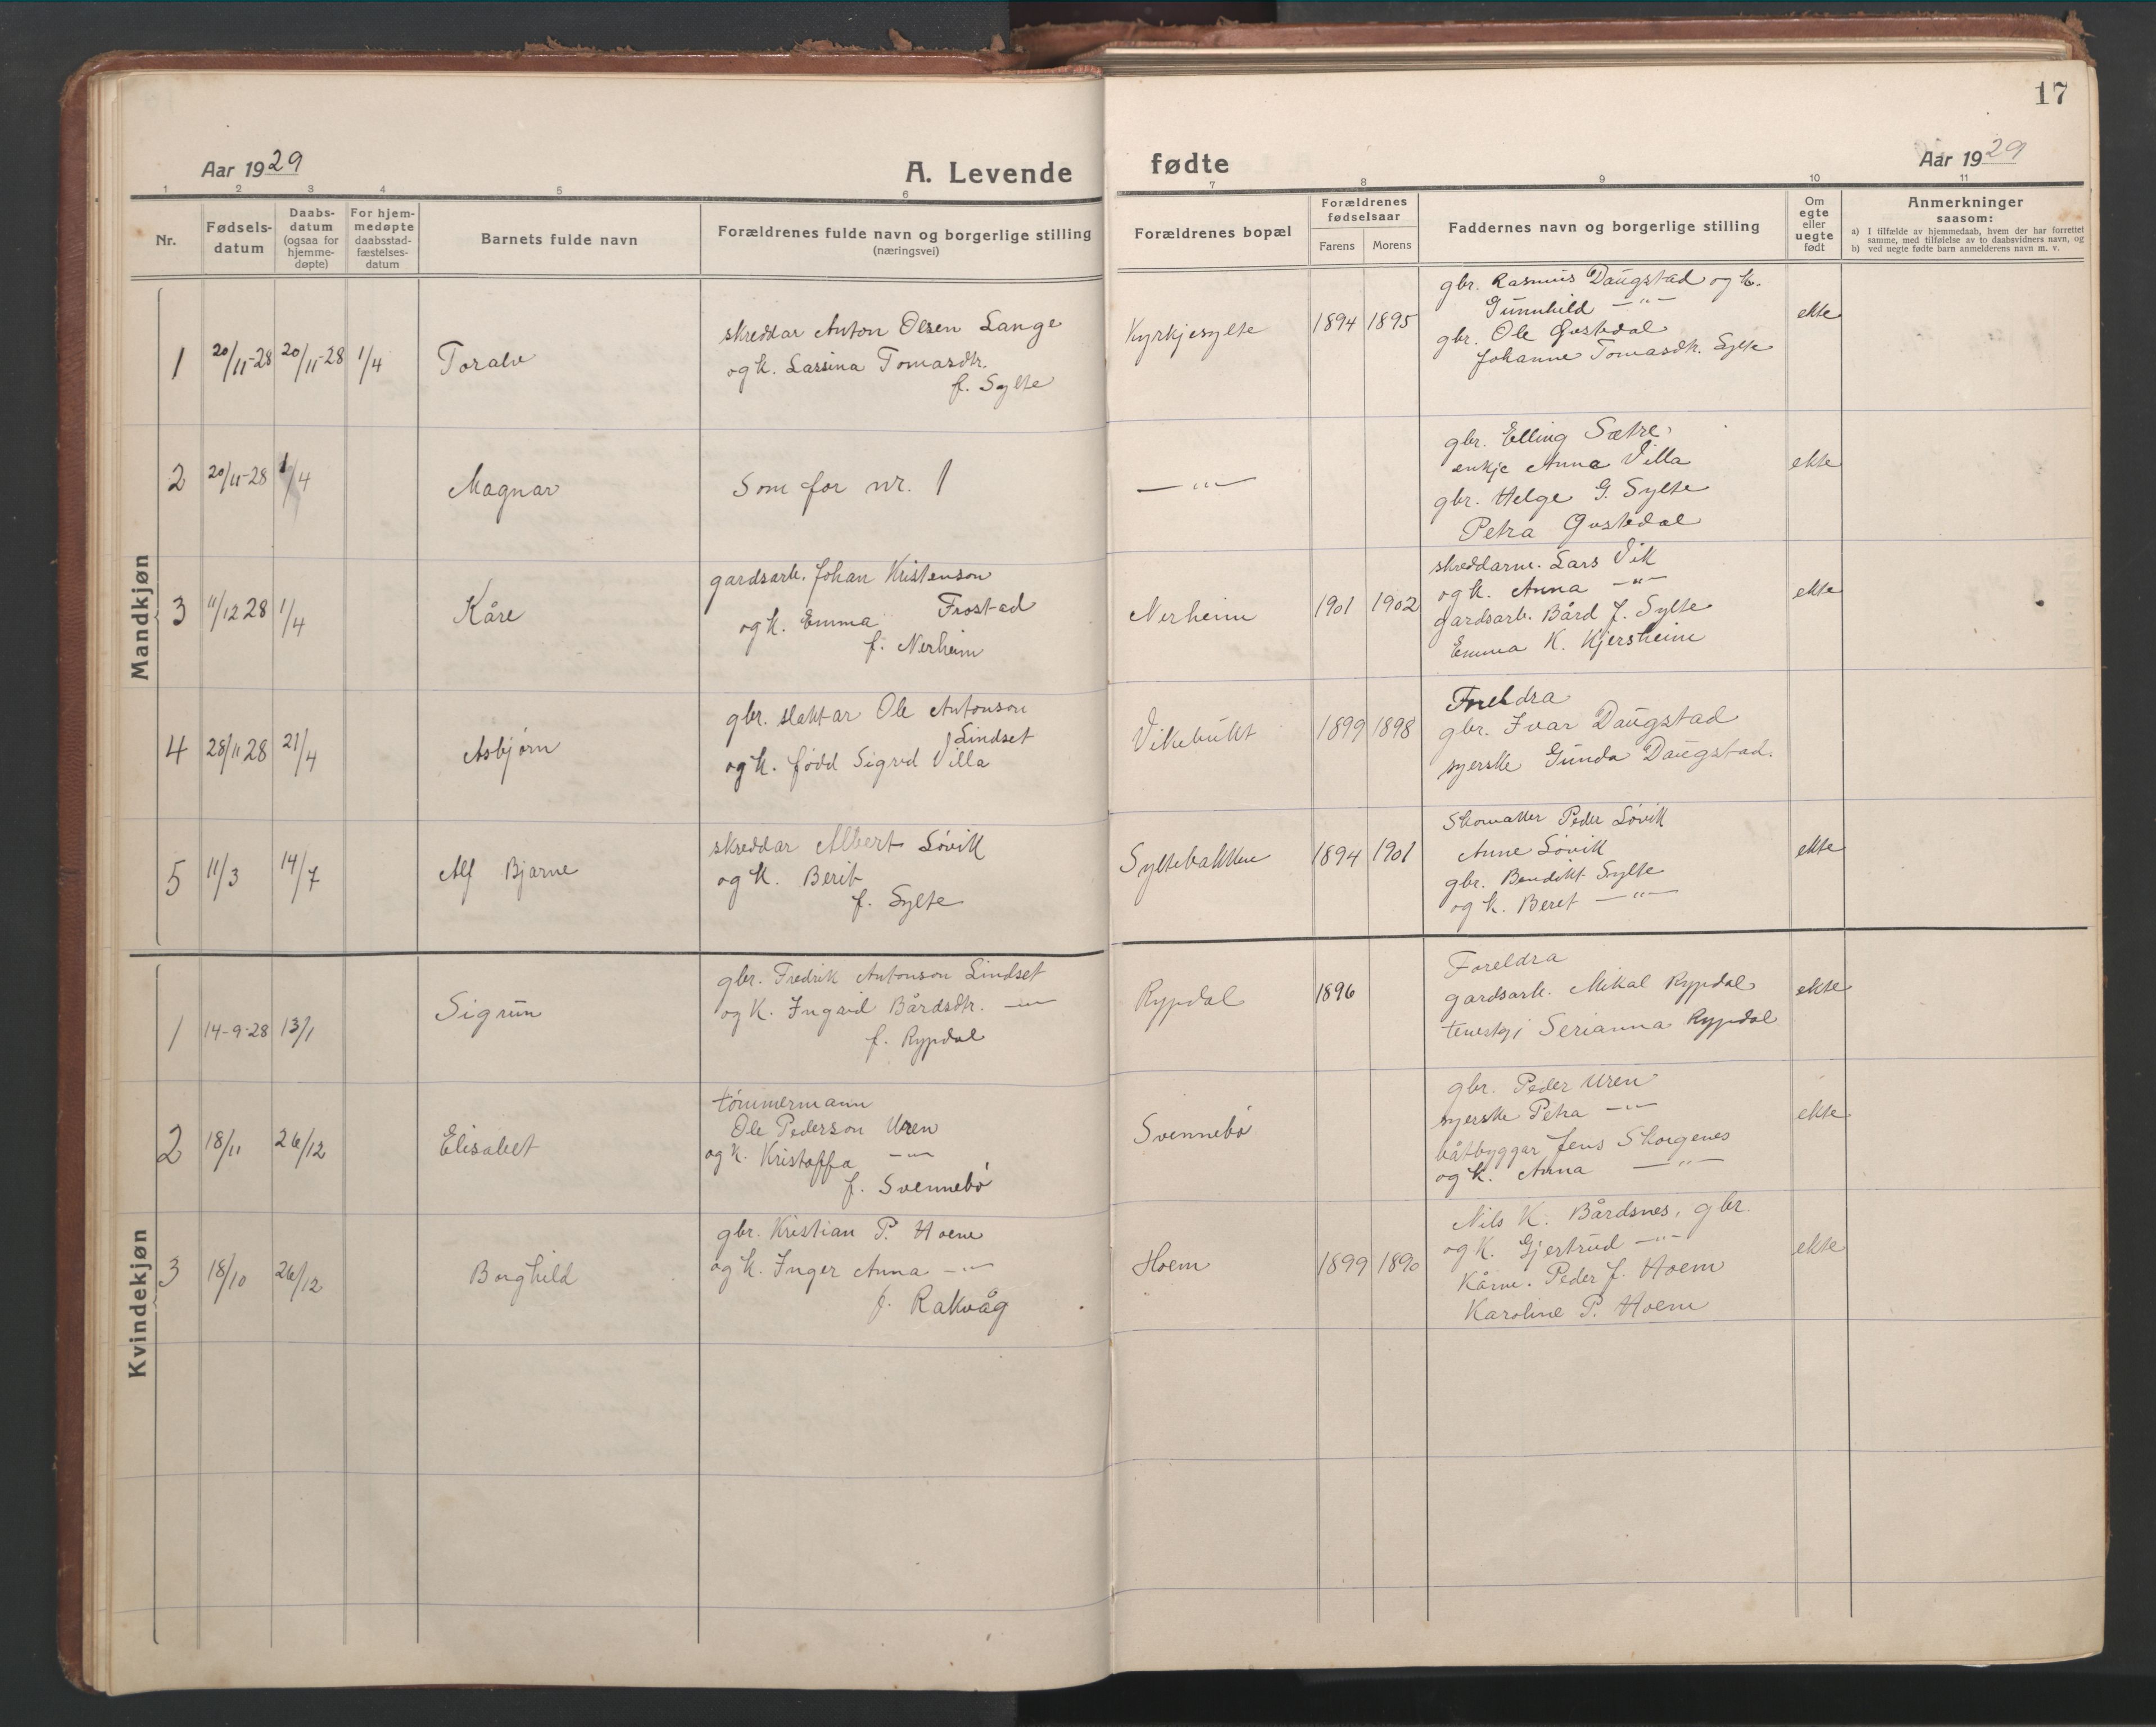 17
Aar 1929
A. Levende fødte
Aar 1929
1 2 3 4 5 6 7 8 9 10 11
Nr.
Fødsels-
datum
Daabs-
datum
(ogsaa for
hjemme-
døpte)
For hjem-
medøpte
daabsstad-
fæstelses-
datum
Barnets fulde navn
Forældrenes fulde navn og borgerlige stilling
(næringsvei)
Forældrenes bopæl
Forældrenes
fødselsaar
Farens Morens
Faddernes navn og borgerlige stilling
Om
egte
eller
uegte
født
Anmerkninger
saasom:
a) I tilfælde av hjemmedaab, hvem der har forrettet
samme, med tilføielse av to daabsvidners navn, og
b) ved uegte fødte barn anmelderens navn m. v.
Mandkjøn
1 20/11-28 20/11-28 1/4 Toralv
skreddar Anton Olsen Lange
og k. Lassina Tomasdtr.
f. Sylte
Kyrkjesylte 1894 1895
gbr. Rasmus Daugstad og k.
Gunnhild —"—
gbr. Ole Gustedal
Johanne Tomasdtr. Sylte
ekte
2 20/11-28 1/4 Magnar
Som for nr. 1
—"—
gbr. Elling Sætre
enkje Anna Villa
gbr. Helge G. Sylte
Petra Gustedal
ekte
3 11/12 28 1/4 Kåre
gardsarb. Johan Kristenson
Frostad
og k. Emma
f. Nerheim
Nerheim 1901 1902
skreddarm. Lars Vik
og k. Anna —"—
gardsarb. Bård J. Sylte
Emma K. Kjersheim
ekte
4 28/11 28 21/4 Asbjørn
gbr. slaktar Ole Antonson
Lindset
og k. född Sigrid Villa
Vikebukt 1899 1898
Foreldra
gbr. Ivar Daugstad
syerske Gunda Daugstad.
5 11/3 14/7 Alf Bjarne
skreddar Albert Løvik
og k. Berit
f. Sylte
Syltebakken 1894 1901
Skomaker Peder Løvik
Anne Løvik
gbr. Bendikt Sylte
og k. Beret —"—
ekte
Kvindekjøn
1 14-9-28 13/1 Sigrun
gbr. Fredrik Antonson Lindset
og k. Ingrid Bårdsdtr. —"—
f. Rypdal
Rypdal 1896
Foreldra
gardsarb. Mikal Rypdal
Serianna Rypdal
ekte
2 18/11 26/12 Elisabet
tömmermann
Ole Pederson Uren
og k. Kristoffa —"—
f. Svennebø
Svennebø
gbr. Peder Uren
syerske Petra —"—
båtbyggar Jens Skorgenes
og k. Anna —"—
ekte
3 18/10 26/12 Borghild
gbr. Kristian P. Hoem
og k. Inger Anna —"—
f. Rakvåg
Hoem 1899 1890
Nils K. Bårdsnes, gbr.
og k. Gjertrud —"—
Kårm. Peder J. Hoem
Karoline P. Hoem
ekte